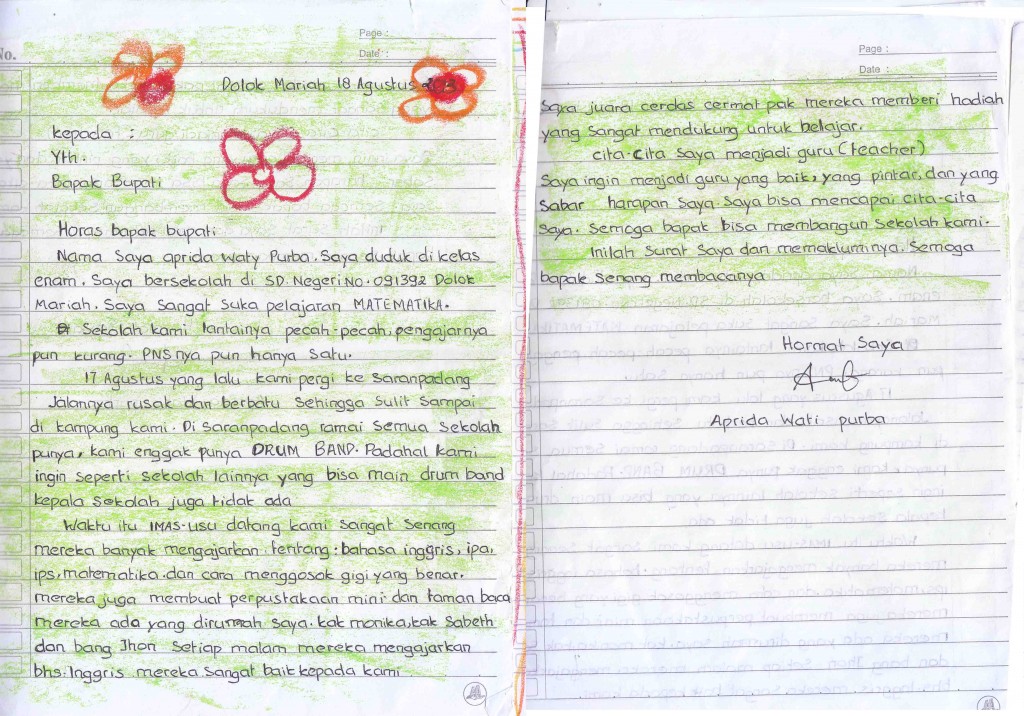 No.
Page :
Date :
Dolok Mariah 18 Agustus
kepada :
Yth.
Bapak Bupati
Horas bapak bupati
Nama saya aprida waty Purba. Saya duduk di kelas
enam. Saya bersekolah di SD. Negeri NO. 091392 Dolok
Mariah. Saya sangat suka pelajaran MATEMATIKA.
Sekolah kami lantainya pecah-pecah, pengajarnya
pun kurang. PNS nya pun hanya satu.
17 Agustus yang lalu kami pergi ke Saranpadang
Jalannya rusak dan berbatu sehingga sulit sampai
di kampung kami. Di Saranpadang ramai semua sekolah
punya, kami enggak punya DRUM BAND. Padahal kami
ingin seperti sekolah lainnya yang bisa main drum band
kepala sekolah juga tidak ada
Waktu itu IMAS-USU datang kami sangat senang
mereka banyak mengajarkan tentang : bahasa inggris, ipa,
ips, matematika. dan cara menggosok gigi yang benar.
mereka juga membuat perpustakaan mini dan taman baca
mereka ada yang dirumah saya. kak monika, kak Sabeth
dan bang Jhon Setiap malam mereka mengajarkan
bhs. Inggris mereka sangat baik kepada kami
Page :
Date :
Saya juara cerdas cermat pak mereka memberi hadiah
yang sangat mendukung untuk belajar.
cita-cita saya menjadi guru (teacher)
Saya ingin menjadi guru yang baik, yang pintar, dan yang
sabar harapan saya. Saya bisa mencapai cita-cita
saya. Semoga bapak bisa membangun sekolah kami.
Inilah surat saya dan memakluminya. Semoga
bapak senang membacanya
Hormat Saya
Aprida Wati purba